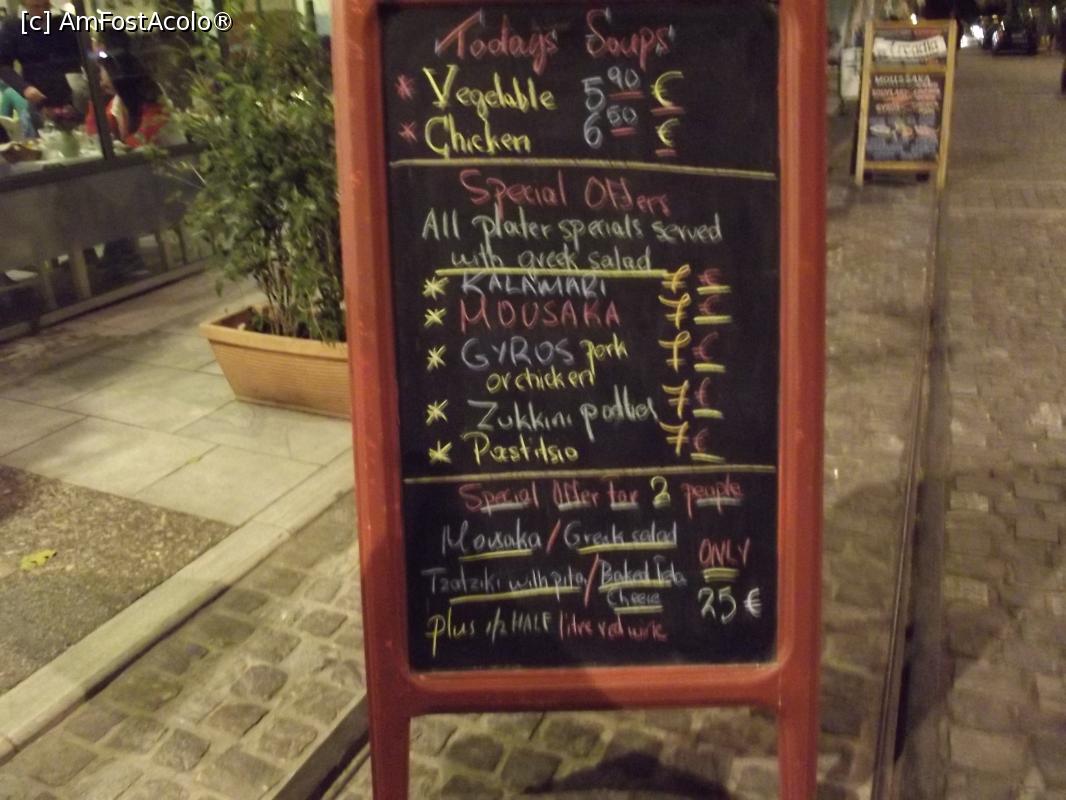 [c] AmFostAcolo®
Todays Soups
* Vegetable 5 90 €
* Chicken 6 50 €
Special Offers
All plater specials served
with greek salad
* KALAMARI 7 €
* MOUSAKA 7 €
* GYROS pork 7 €
or chicken
* Zukkini 7 €
* Pastitsio 7 €
Special Offer for 2 people
Mousaka / Greek salad
ONLY
Tzatziki with pita / Baked Feta
Cheese
25 €
plus 1/2 HALF litre red wine
MOUSSAKA